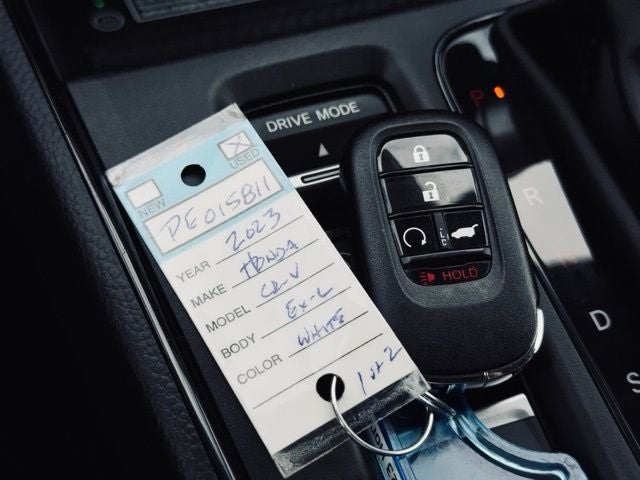 DRIVE MODE
P
R
D
S
NEW
USED
PE015811
YEAR 2023
MAKE HONDA
MODEL CR-V
BODY EX-L
COLOR WHITE
1 of 2
HOLD